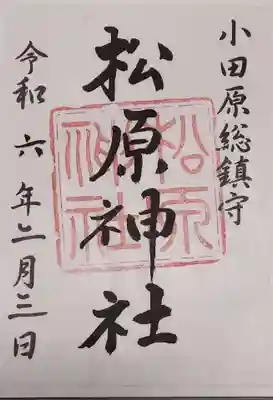 小田原総鎮守
松原神社
松原神社
令和六年二月三日